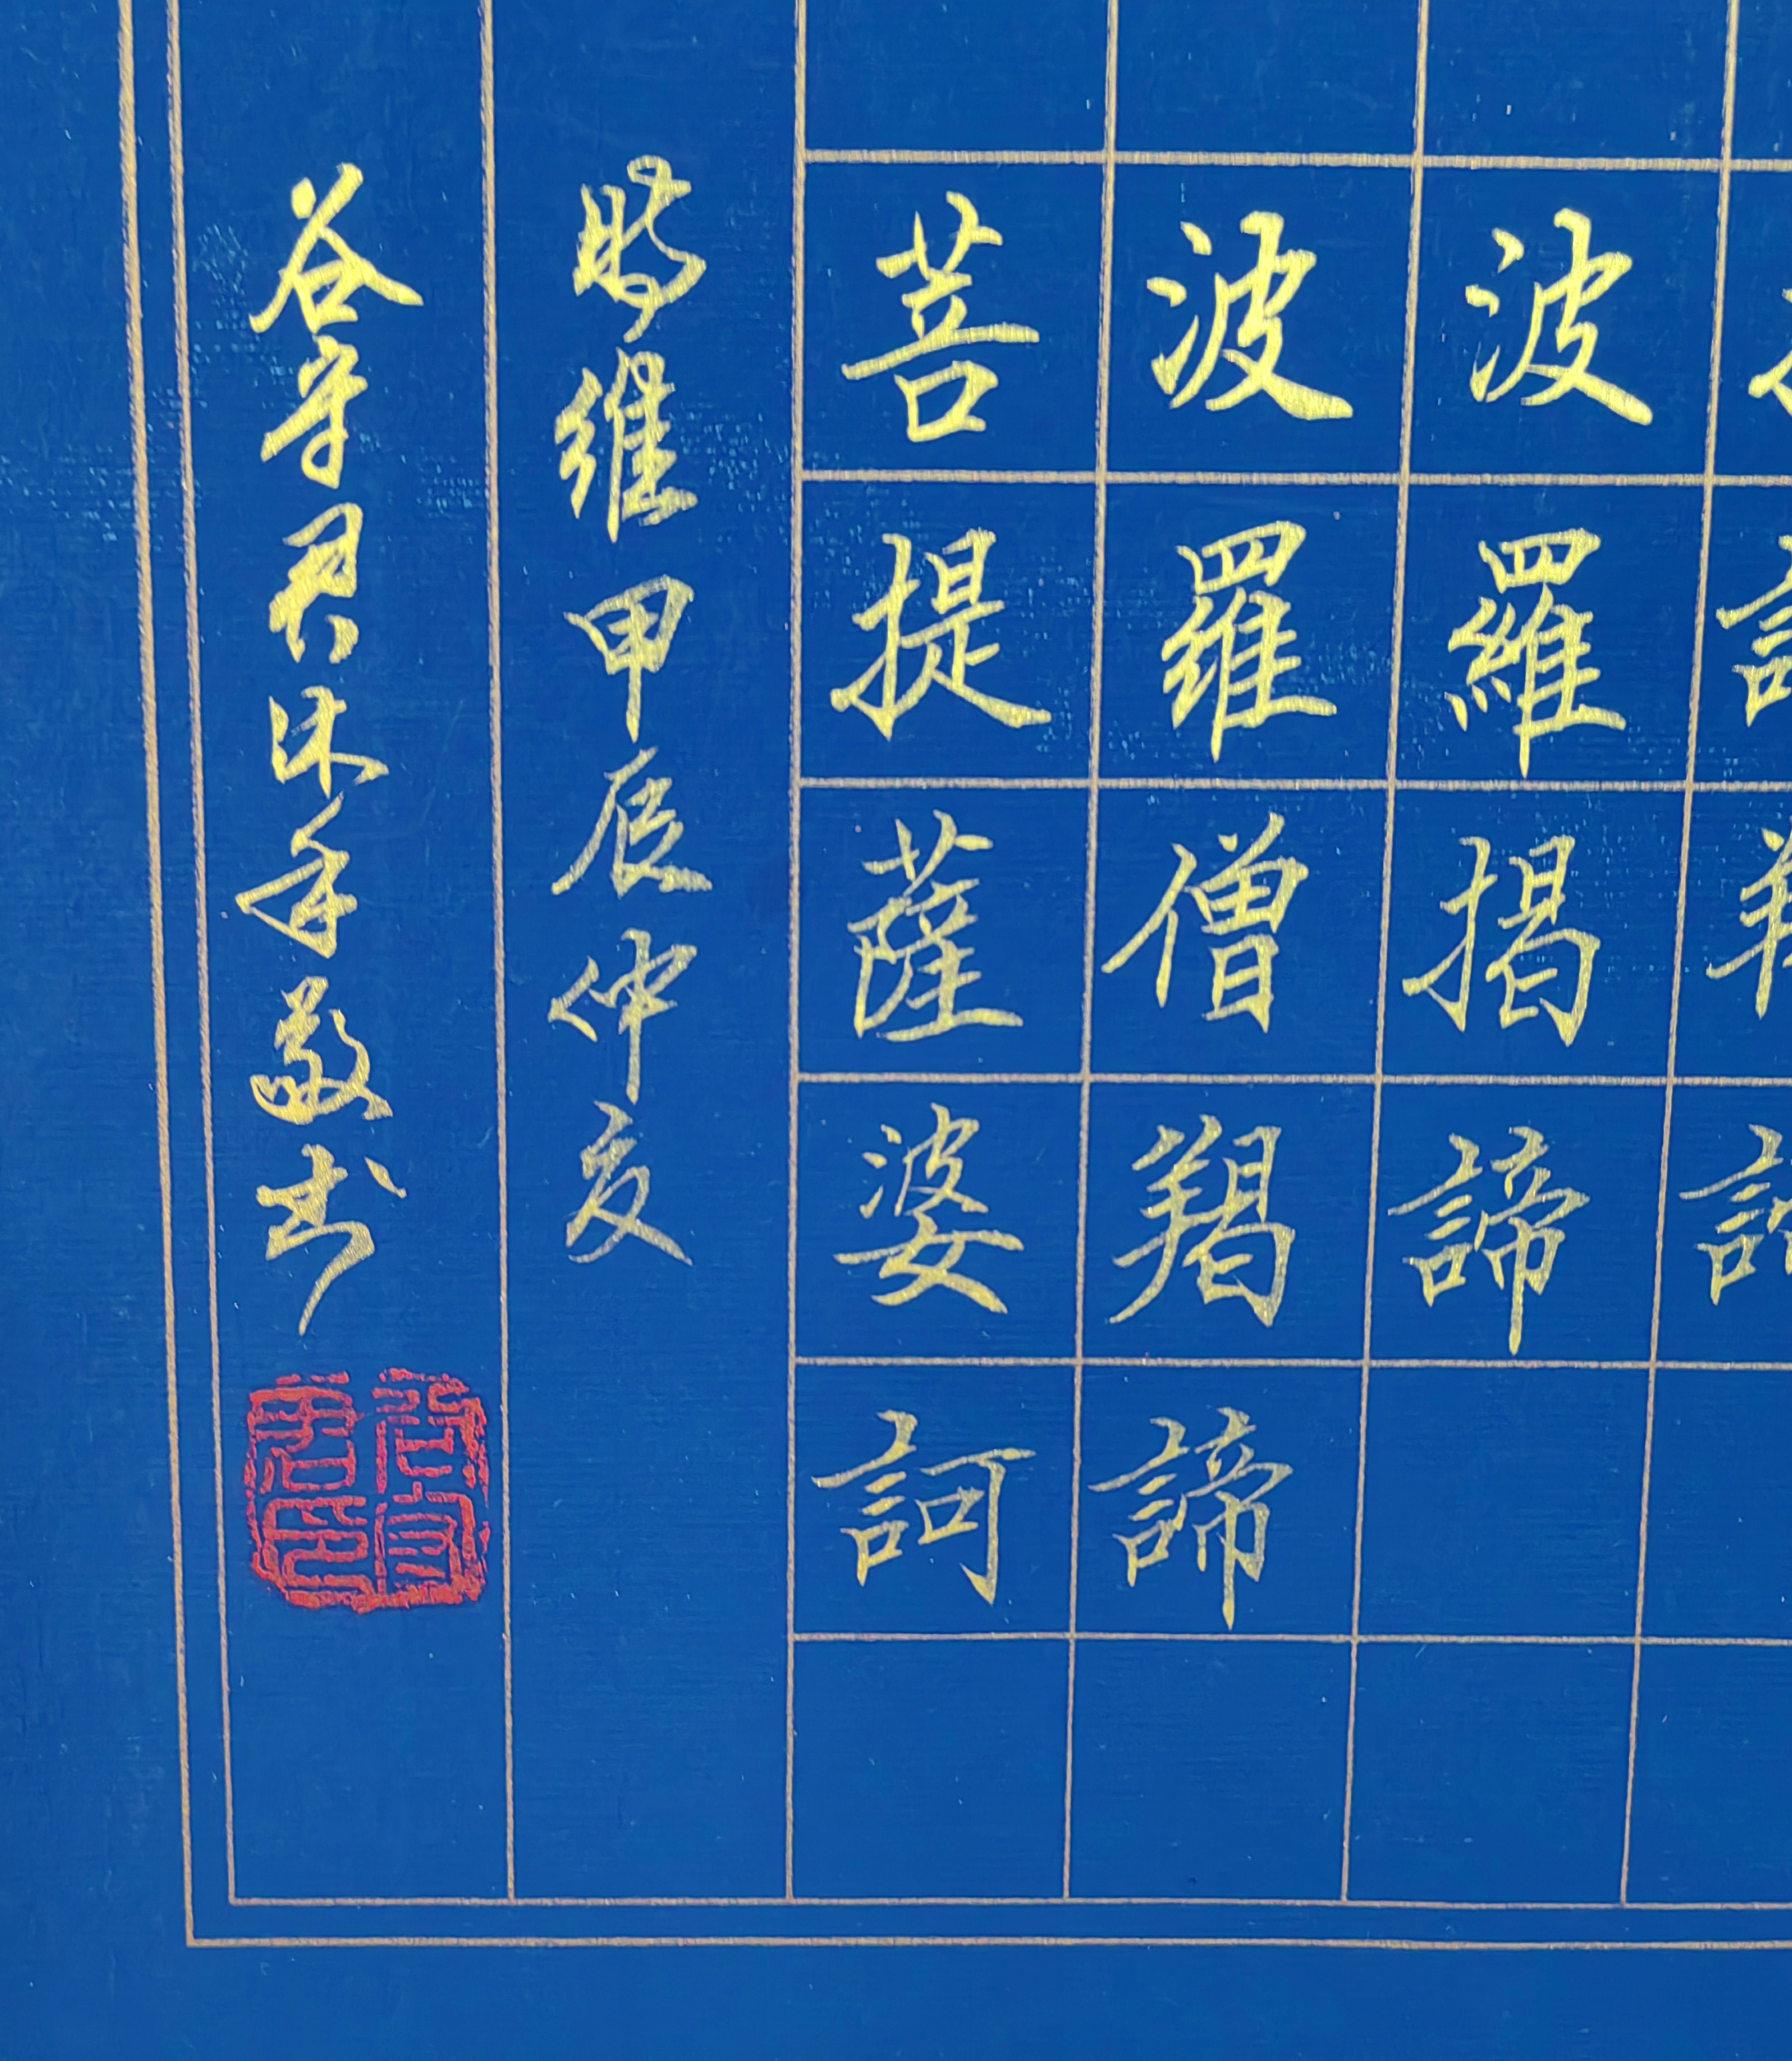 波羅揭諦
波羅僧羯諦
菩提薩婆訶
時維甲辰仲夏
谷守君沐手敬书
谷守君印